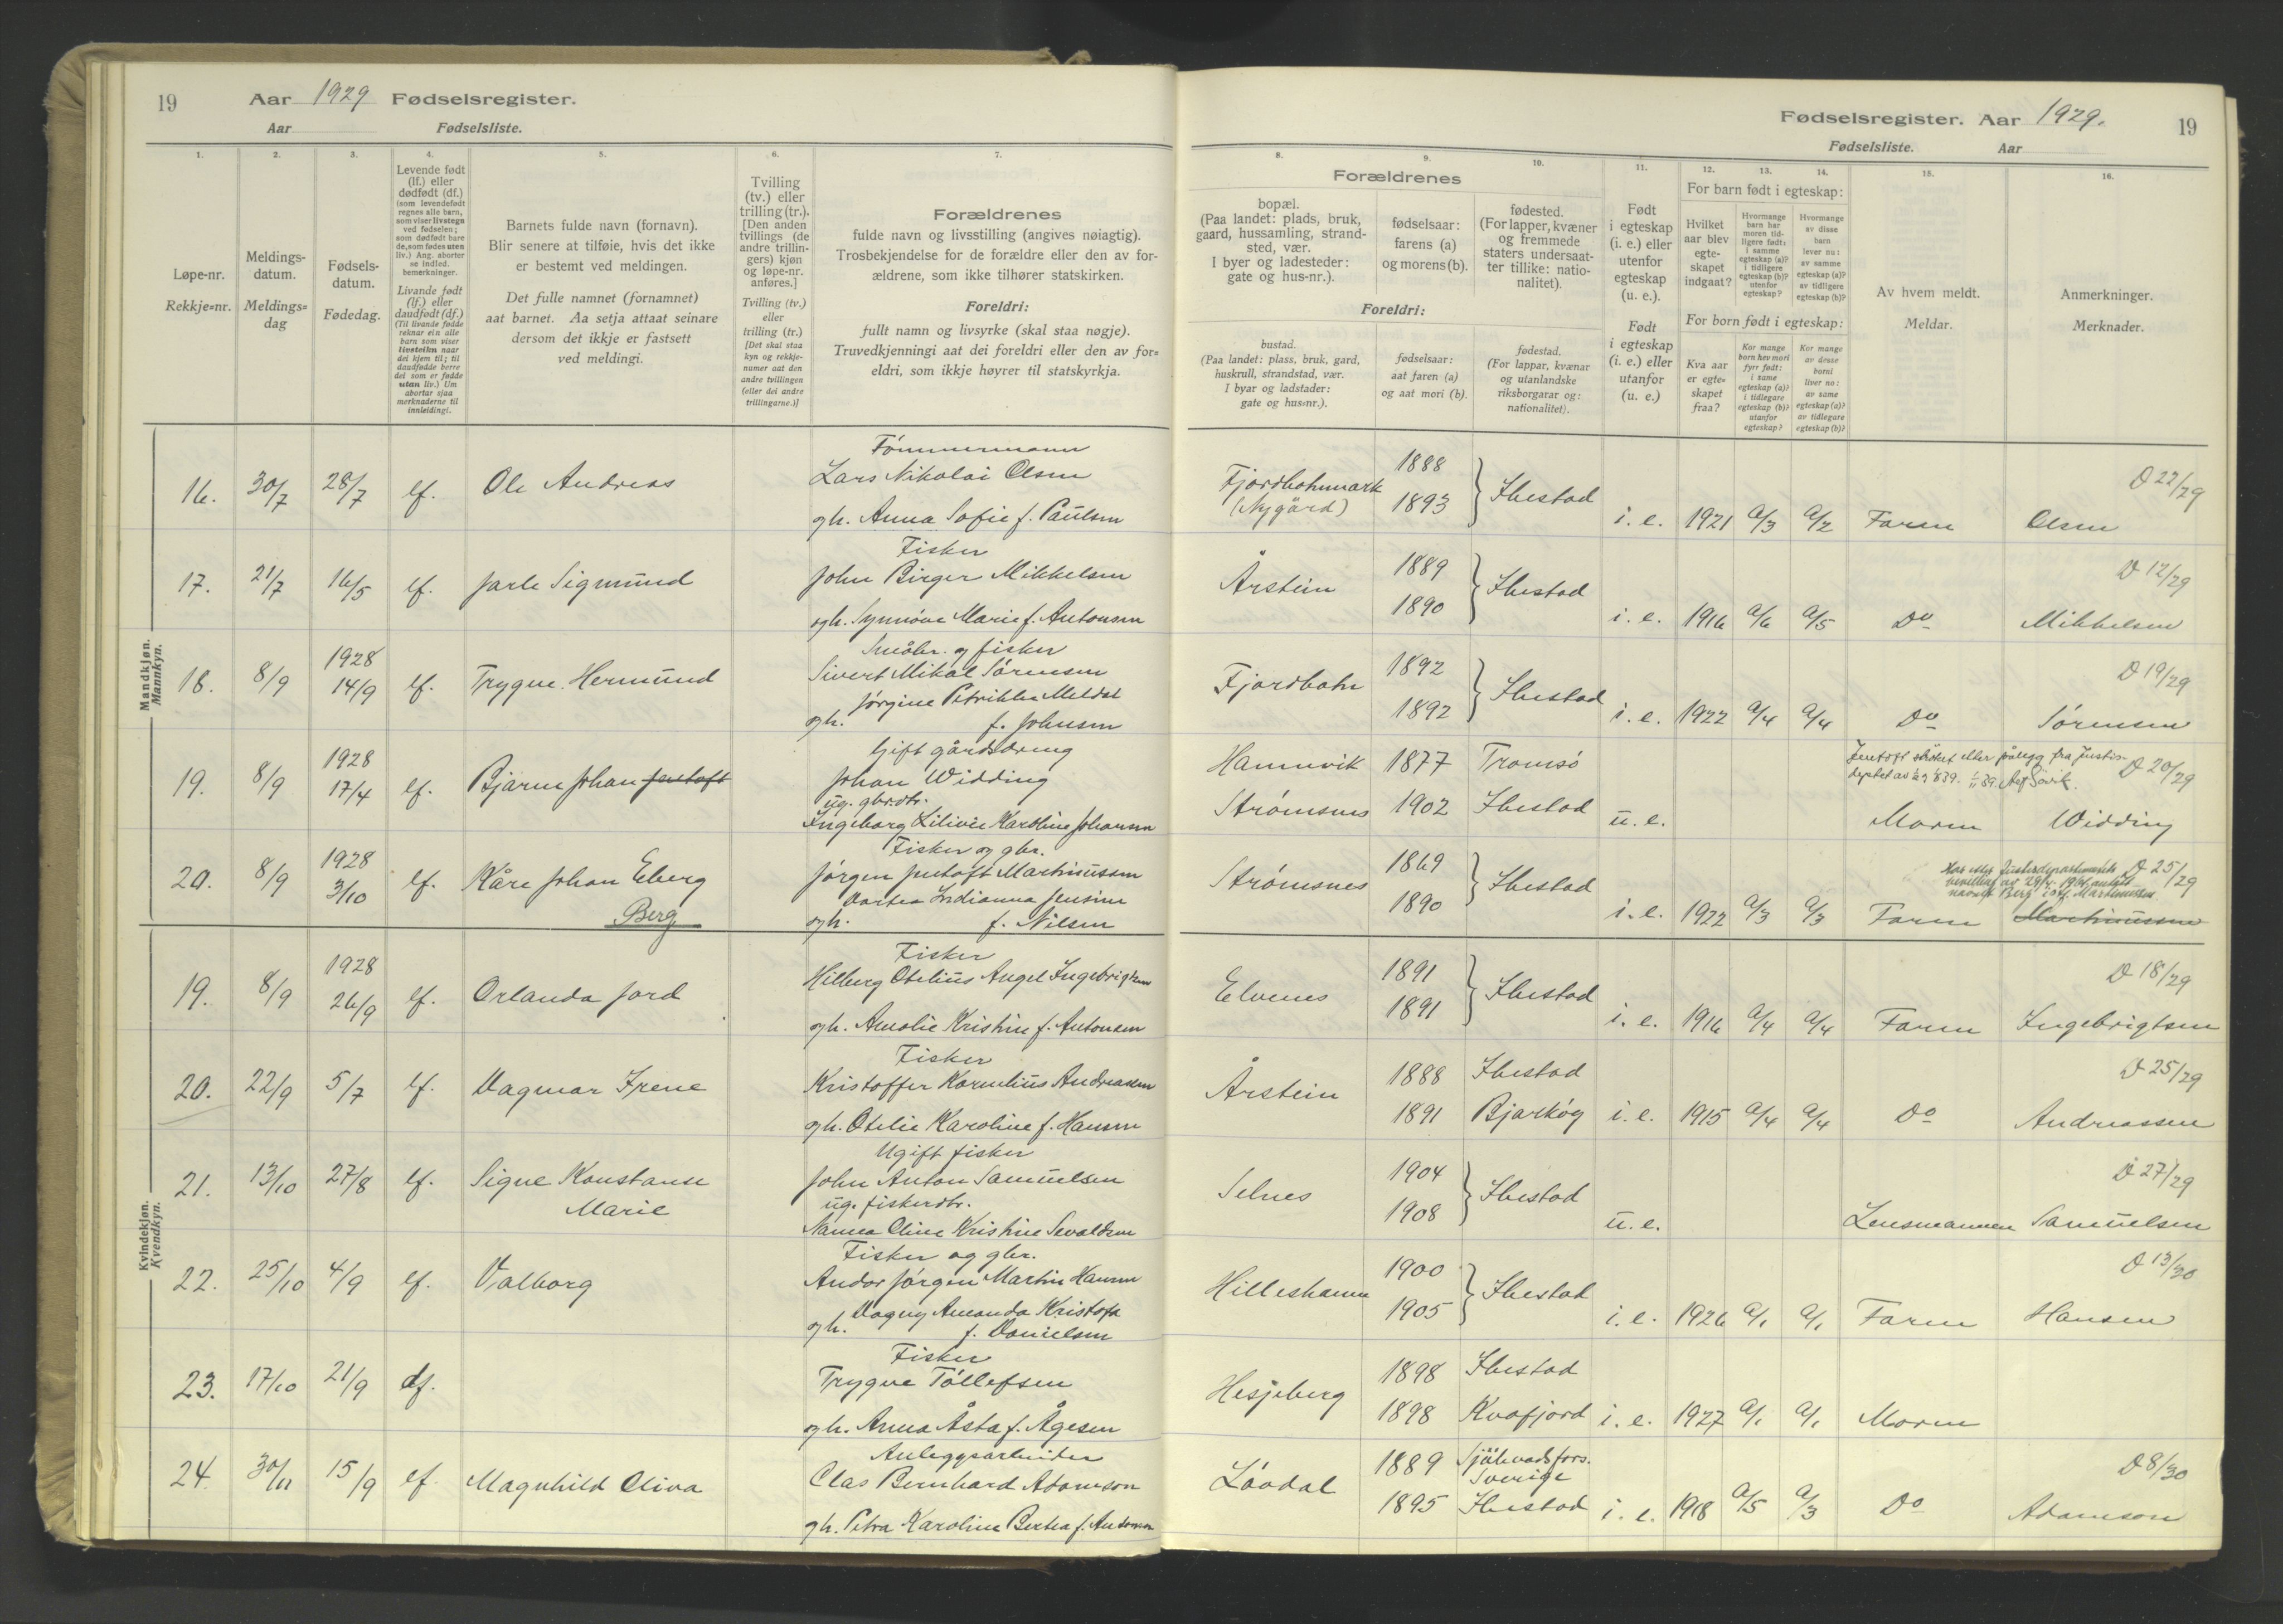 19 Aar 1929 Fødselsregister.
Aar Fødselsliste.
1.
Løpe-nr.
Rekkje=nr.
2.
Meldings-
datum.
Meldings=
dag
3.
Fødsels-
datum.
Fødedag.
4.
Levende født
(lf.) eller
dødfødt (df.)
(som levendefødt
regnes alle barn,
som viser livstegn
ved fødselen;
som dødfødt bare
de, som fødes uten
liv.) Ang. aborter
se indled.
bemerkninger.
Livande født
(lf.) eller
daudfødt (df.)
(Til livande fødde
reknar ein alle
barn som viser
livsteikn naar
dei kjem til; til
daudfødde berre
dei som er fødde
utan liv.) Um
abortar sjaa
merknaderne til
innleidingi.
5.
Barnets fulde navn (fornavn).
Blir senere at tilføie, hvis det ikke
er bestemt ved meldingen.
Det fulle namnet (fornamnet)
aat barnet. Aa setja attaat seinare
dersom det ikkje er fastsett
ved meldingi.
6.
Tvilling
(tv.) eller
trilling (tr.).
[Den anden
tvillings (de
andre trillin-
gers) kjøn
og løpe-nr.
anføres.]
Tvilling (tv.)
eller
trilling (tr.)
[Det skal staa
kyn og rekkje-
numer aat den
andre tvillingen
(eller dei andre
trillingarne.)]
7.
Forældrenes
fulde navn og livsstilling (angives nøiagtig).
Trosbekjendelse for de forældre eller den av for-
ældrene, som ikke tilhører statskirken.
Foreldri:
fullt namn og livsyrke (skal staa nøgje).
Truvedkjenningi aat dei foreldri eller den av for=
eldri, som ikkje høyrer til statskyrkja.
Mandkjøn.
Mannkyn.
Tømmermann
16. 30/7 28/7 lf. Ole Andreas Lars Nikolai Olsen
gh. Anna Sofie f. Paulsen
Fisker
17. 21/7 16/5 lf. Jarle Sigmund John Birger Mikkelsen
ogh. Synnøve Marie f. Antonsen
Småbr. og fisker
18. 8/9 1928 14/9 lf. Trygve Hermund Sivert Mikal Sørensen
Jørgine Petrikke Meldal
gh. f. Johnsen
Gift gårdsdreng
19. 8/9 1928 17/4 lf. Bjarne Johan Jentoft Johan Widding
ug. gbr.dtr.
Ingeborg Lilivie Karoline Johansen
Fisker og gbr.
20. 8/9 1928 3/10 lf. Kåre Johan Eberg Jørgen Jentoft Martinussen
Dortea Indianna Jensine
Berg gh. f. Nilsen
Kvindekjøn.
Kvendkyn.
Fisker
19. 8/9 1928 26/9 lf. Orlanda Jord Hilberg Otelius Angel Ingebrigtsen
ogh. Amalie Kristine f. Antonsen
Fisker
20. 22/9 5/7 lf. Dagmar Irene Kristoffer Kornelius Andreassen
gh. Otelie Karoline f. Hansen
Ugift fisker
21. 13/10 27/8 lf. Signe Konstanse John Anton Samuelsen
Marie ug. fiskerdtr.
Nanna Oline Kristine Sevaldsen
Fisker og gbr.
22. 25/10 4/9 lf. Valborg Andor Jørgen Martin Hansen
Dagny Amanda Kristofa
gh. f. Danielsen
Fisker
23. 17/10 21/9 df. Trygve Tollefsen
gh. Anna Åsta f. Ågesen
Anleggsarbeider
24. 30/11 15/9 lf. Magnhild Oliva Clas Bernhard Adamson
gh. Petra Karoline Bertea f. Antonsen
Fødselsregister. Aar 1929. 19
Fødselsliste. Aar
Forældrenes
8.
bopæl.
(Paa landet: plads, bruk,
gaard, hussamling, strand-
sted, vær.
I byer og ladesteder:
gate og hus-nr.).
9.
fødselsaar:
farens (a)
og morens (b).
10.
fødested.
(For lapper, kvæner
og fremmede
staters undersaat-
ter tillike: natio-
nalitet).
Foreldri:
bustad.
(Paa landet: plass, bruk, gard,
huskrull, strandstad, vær.
I byar og ladstader:
gate og hus=nr.).
fødselsaar:
aat faren (a)
og aat mori (b).
fødestad.
(For lappar, kvænar
og utanlandske
riksborgarar og:
nationalitet).
11.
Født
i egteskap
(i. e.) eller
utenfor
egteskap
(u. e.).
Født
i egteskap
(i. e.) eller
utanfor
(u. e.)
12. 13. 14.
For barn født i egteskap:
Hvilket
aar blev
egte-
skapet
indgaat?
Hvormange
barn har
moren tid-
ligere født:
i samme
egteskap (a)?
i tidligere
egteskap (b)?
utenfor
egteskap?
Hvormange
av disse
barn
lever nu:
av samme
egteskap (a)?
av tidligere
egteskap (b)?
For born født i egteskap:
Kva aar
er egte=
skapet
fraa?
Kor mange
born hev mori
fyrr født:
i same
egteskap (a)?
i tidlegare
egteskap (b)?
utanfor
egteskap?
Kor mange
av desse
borni
liver no:
av same
egteskap (a)?
av tidlegare
egteskap (b)?
15.
Av hvem meldt.
Meldar.
16.
Anmerkninger.
Merknader.
Fjordbotnmark (Nygård) 1888 1893 } Ibestad i. e. 1921 a/3 a/2 Faren Olsen D 22/29
Årstein 1889 1890 } Ibestad i. e. 1916 a/6 a/5 Do Mikkelsen D 12/29
Fjordbotn 1892 1892 } Ibestad i. e. 1922 a/4 a/4 Do Sørensen D 19/29
Hamnvik 1877 Tromsø
Jentoft strøket etter pålegg fra Justis-
D 20/29
Strømsnes 1902 Ibestad u. e. Moren Widding
Strømsnes 1869 1890 } Ibestad i. e. 1922 a/3 a/3 Faren Martinussen D 25/29
Har etter Justisdepartementets
navnet Berg istf. Martinussen.
Elvenes 1891 1891 } Ibestad i. e. 1916 a/4 a/4 Faren Ingebrigtsen D 18/29
Årstein 1888 Ibestad D 25/29
1891 Bjarkøy i. e. 1915 a/4 a/4 Do Andreassen
Selnes 1904 1908 } Ibestad u. e. Lensmannen Samuelsen D 27/29
Hilleshamn 1900 1905 } Ibestad i. e. 1926 a/1 a/1 Faren Hansen D 13/30
Hesjeberg 1898 Ibestad
1898 Kvæfjord i. e. 1927 a/1 a/1 Moren
Løvdal 1889 Själevadsfors. Sverige D 8/30
1895 Ibestad i. e. 1918 a/5 a/3 Do Adamson